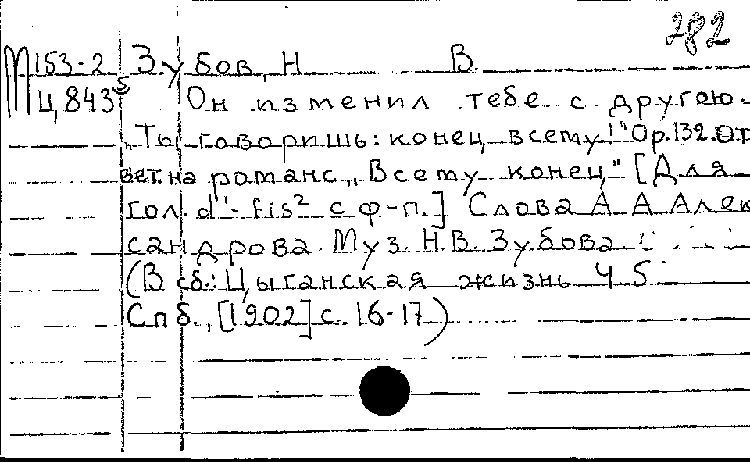 282
М 153-2 Зубов, Н В.
Ц, 843⁵ Он изменил тебе с другою.
„Ты говоришь: конец всему!" Ор. 132. От
вет. на романс „Всему конец" [Для
гол. d¹-fis² с ф-п.] Слова А А Алек
сандрова. Муз. Н.В. Зубова.
(В сб.: Цыганская жизнь Ч 5
Спб., [1902] с. 16-17)